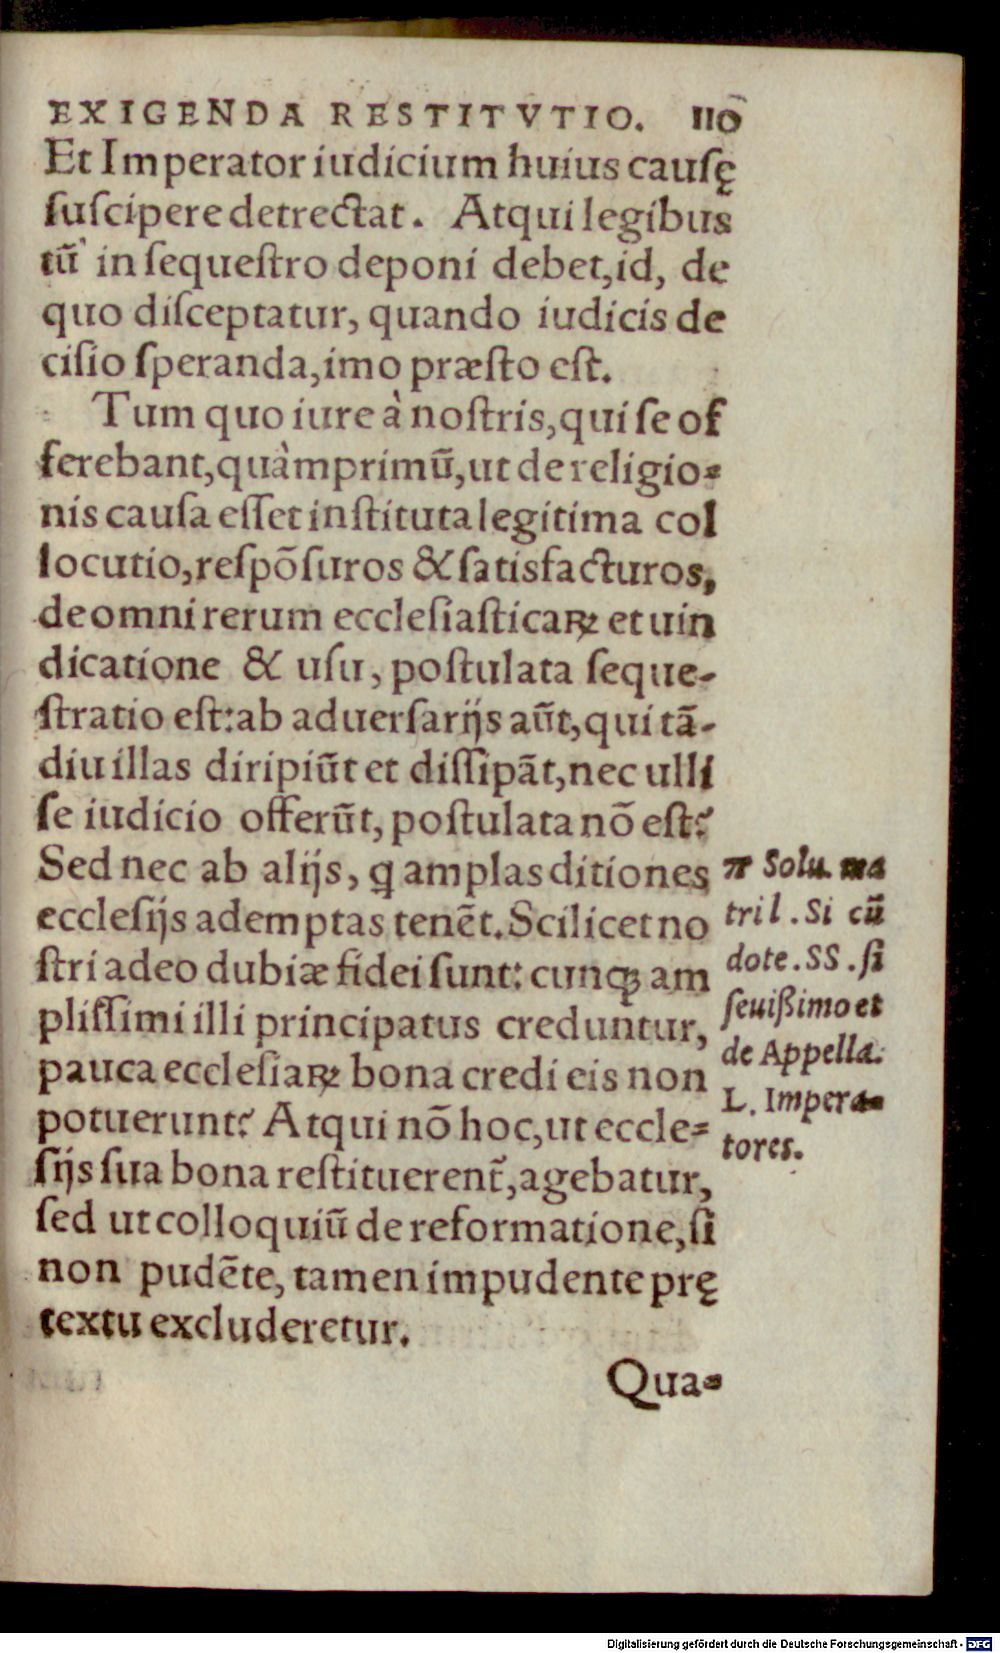 EXIGENDA RESTITVTIO. 110
Et Imperator iudicium huius causę
ſuſcipere detrectat. Atqui legibus
tū in ſequeſtro deponi debet, id, de
quo diſceptatur, quando iudicis de
ciſio ſperanda, imo præſto eſt.
Tum quo iure à noſtris, qui ſe of
ferebant, quàmprimū, ut de religio-
nis cauſa eſſet inſtituta legitima col
locutio, reſpōſuros & ſatisfacturos,
de omni rerum eccleſiaſticaꝝ et uin
dicatione & uſu, poſtulata ſeque-
ſtratio eſt: ab aduerſarijs aūt, qui tā-
diu illas diripiūt et diſſipāt, nec ulli
ſe iudicio offerūt, poſtulata nō eſt?
Sed nec ab alijs, ꝗ amplas ditiones
eccleſijs ademptas tenēt. Scilicet no
ſtri adeo dubiæ fidei ſunt: cunqꝫ am
pliſſimi illi principatus creduntur,
pauca eccleſiaꝝ bona credi eis non
potuerunt? Atqui nō hoc, ut eccle-
ſijs ſua bona reſtituerent̄, agebatur,
ſed ut colloquiū de reformatione, ſi
non pudēte, tamen impudente prę
textu excluderetur.
Qua-
Solu. ma
tril. Si cū
dote. SS. ſi
ſeuißimo et
de Appella.
L. Impera-
tores.
Digitalisierung gefördert durch die Deutsche Forschungsgemeinschaft - DFG